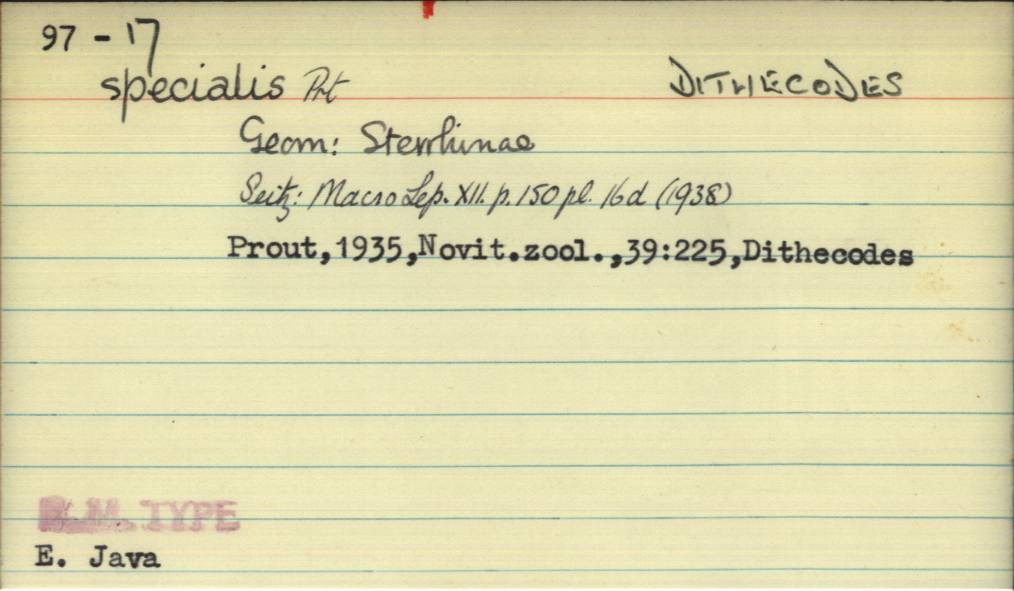 97 - 17
specialis Prt DITHECODES
Geom: Sterrhinae
Seitz: Macro Lep. XII. p. 150 pl. 16d (1938)
Prout,1935,Novit.zool.,39:225,Dithecodes
B.M. TYPE
E. Java